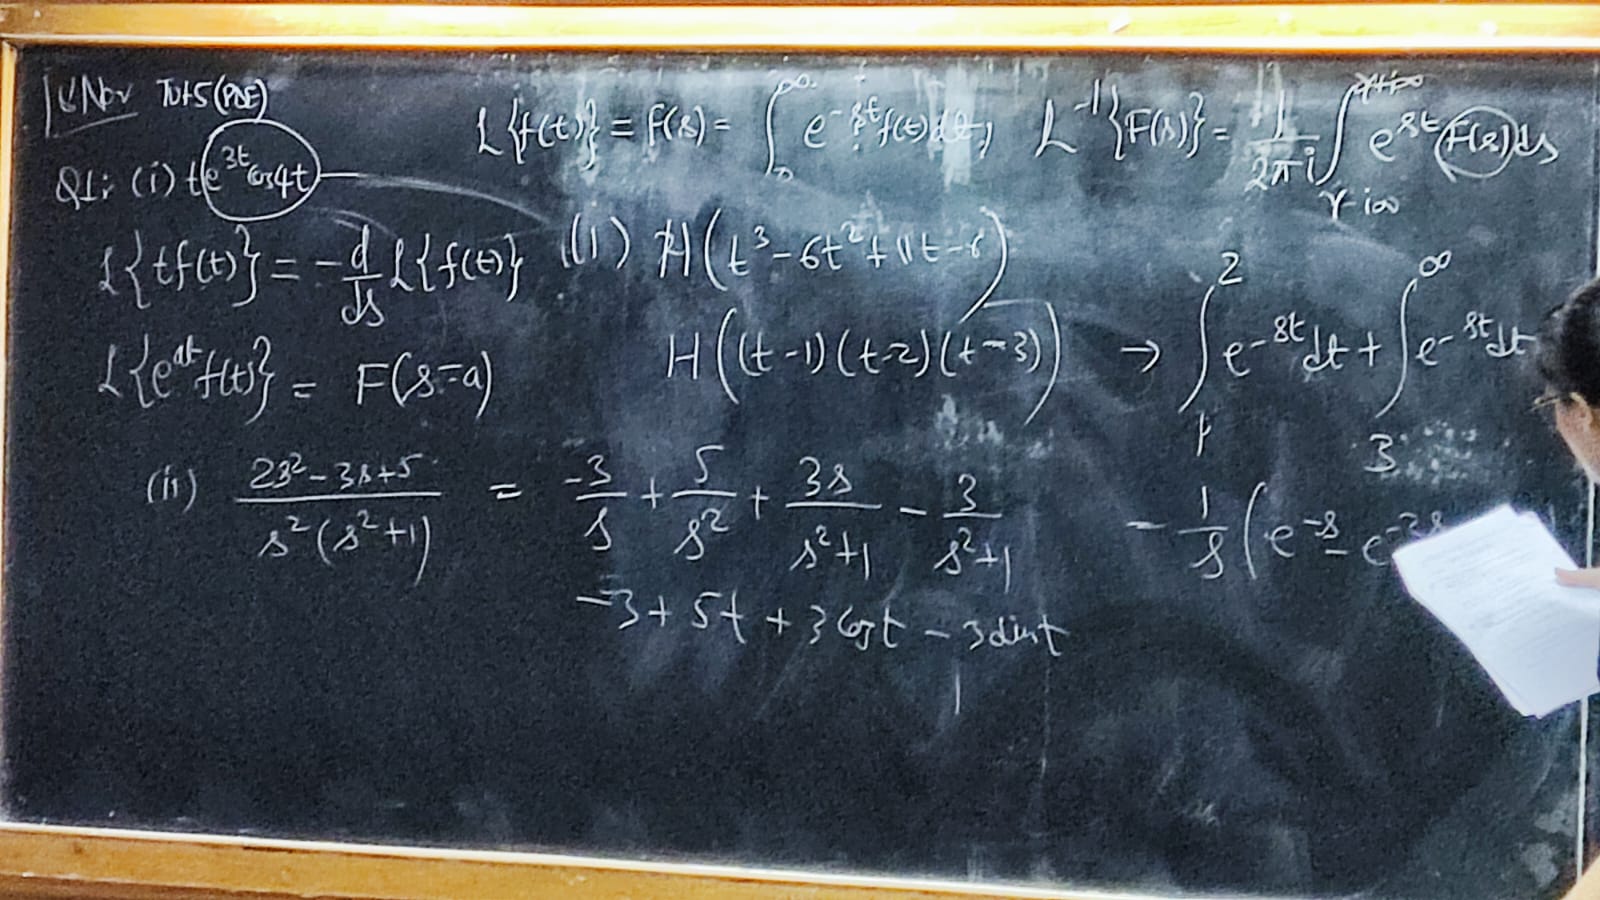 18 Nov Tut5 (PDE)
L{f(t)} = F(s) = ∫_0^∞ e^{-st} f(t) dt, L^{-1}{F(s)} = 1/(2πi) ∫_{γ-i∞}^{γ+i∞} e^{st} F(s) ds
Q1: (i) t e^{3t} cos4t
L{tf(t)} = -d/ds L{f(t)}
L{e^{at} f(t)} = F(s-a)
(ii) H(t^3 - 6t^2 + 11t - 6)
H((t-1)(t-2)(t-3)) → ∫_1^2 e^{-st} dt + ∫_3^∞ e^{-st} dt
- 1/s (e^{-s} - e^{-2s}
(ii) (2s^2 - 3s + 5)/(s^2(s^2+1)) = -3/s + 5/s^2 + 3s/(s^2+1) - 3/(s^2+1)
-3 + 5t + 3 cost - 3 sint